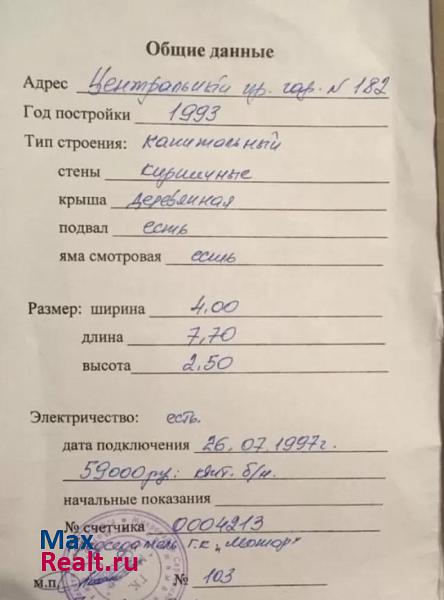 Общие данные
Адрес Центральный пр. гар. N 182
Год постройки 1993
Тип строения: капитальный
стены кирпичные
крыша деревянная
подвал есть
яма смотровая есть
Размер: ширина 4,00
длина 7,70
высота 2,50
Электричество: есть.
дата подключения 26.07.1997г.
59000 ру:
начальные показания
№ счетчика 0004213
председатель Г.К. „Мотор"
Max
Realt.ru
м.п. № 103